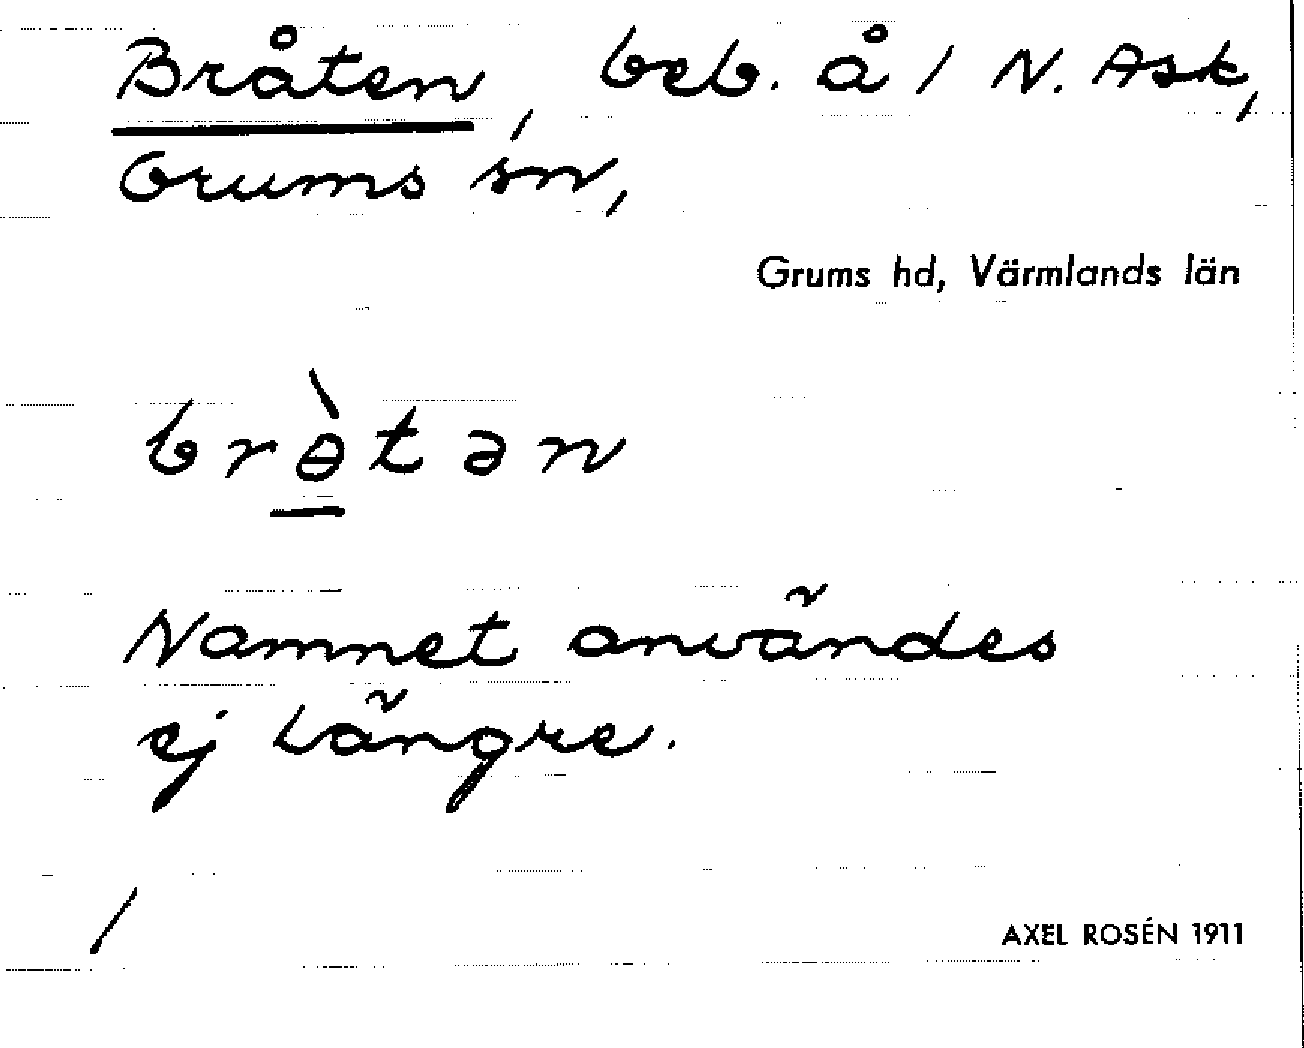 Bråten, beb. å 1 N. Ask,
Grums sn,
Grums hd, Värmlands län
brɵ̀tən
Namnet användes
ej längre.
/
AXEL ROSÉN 1911